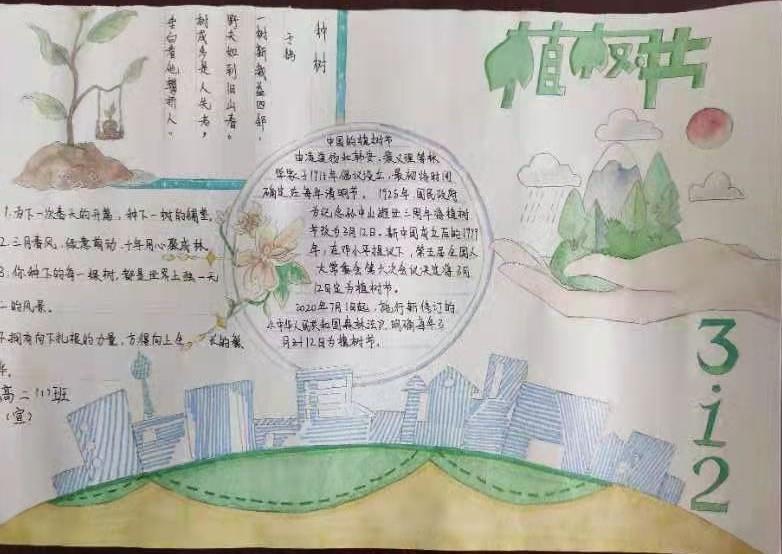 植树节
种树
于鹄
一树新栽益四邻,
野夫如到旧山春。
树成多是人先老,
垂白看他攀折人。
中国的植树节
由凌道扬和韩安、裴义理等林
学家于1915年倡议设立,最初将时间
确定在每年清明节。1928年,国民政府
为纪念孙中山逝世三周年将植树
节改为3月12日。新中国成立后的1979
年,在邓小平提议下,第五届全国人
大常委会第六次会议决定将3月
12日定为植树节。
2020年7月1日起,施行新修订的
《中华人民共和国森林法》,明确每年3
月12日为植树节。
1.为下一次春天的开篇,种下一树的铺垫。
2.三月春风,依意萌动,十年用心聚成林。
3.你种下的每一棵树,都是世界上独一无
二的风景。
拥有向下扎根的力量,方得向上生长的
高二(1)班
(宣)
3·12